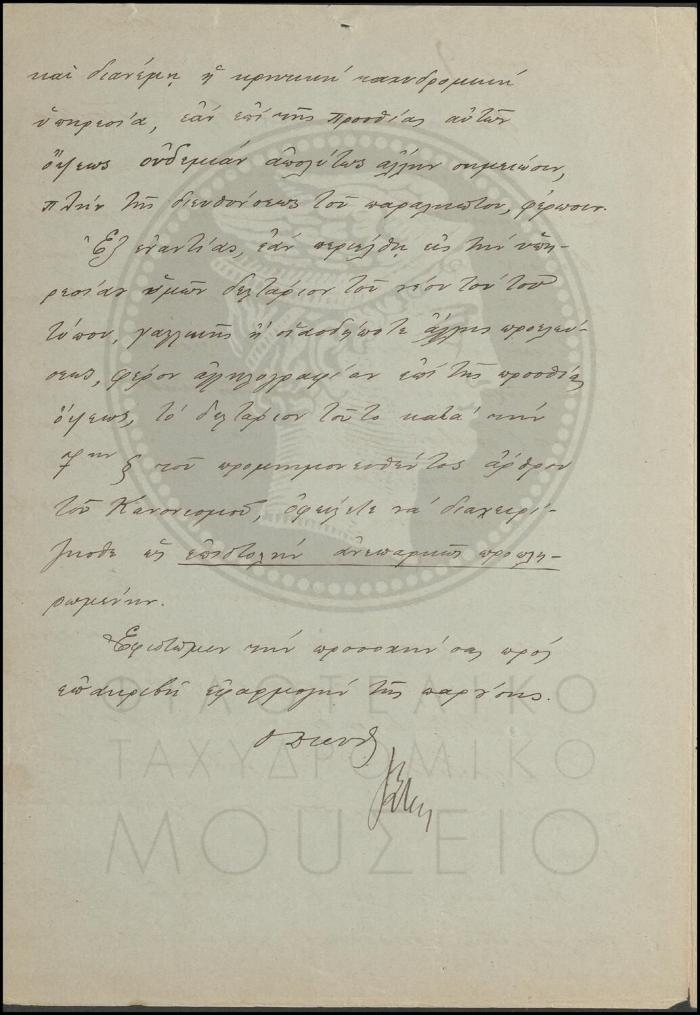 καὶ διανέμῃ ἡ κρητικὴ ταχυδρομικὴ
ὑπηρεσία, ἐὰν ἐπὶ τῆς προσθίας αὐτῶν
ὄψεως οὐδεμίαν ἀπολύτως ἄλλην σημείωσιν,
πλὴν τῆς διευθύνσεως τοῦ παραλήπτου, φέρωσιν.
Ἐξ ἐναντίας, ἐὰν περιέλθῃ εἰς τὴν ὑπη-
ρεσίαν ὑμῶν δελτάριον τοῦ νέου τούτου
τύπου, γαλλικῆς ἢ οἱασδήποτε ἄλλης προελεύ-
σεως, φέρον ἀλληλογραφίαν ἐπὶ τῆς προσθίας
ὄψεως, τὸ δελτάριον τοῦτο κατὰ τὴν
7ην § τοῦ προμνημονευθέντος ἄρθρου
τοῦ Κανονισμοῦ, ὀφείλετε νὰ διαχειρί-
ζησθε ὡς ἐπιστολὴν ἀνεπαρκῶς προπλη-
ρωμένην.
Ἐφιστῶμεν τὴν προσοχήν σας πρὸς
ἐπακριβῆ ἐφαρμογὴν τῆς παρούσης.
ὁ Διευθ
ΦΙΛΟΤΕΛΙΚΟ
ΤΑΧΥΔΡΟΜΙΚΟ
ΜΟΥΣΕΙΟ